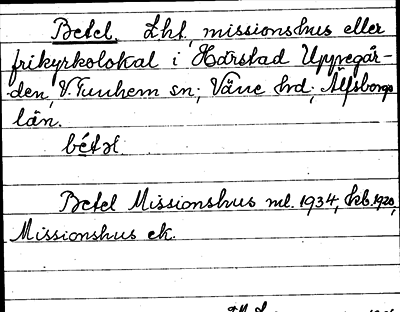 Betel. Lht, missionshus eller
frikyrkolokal i Hårstad Uppegår-
den, V. Tunhem sn; Väne hd; Älfsborgs
län.
bétel.
Betel Missionshus ml. 1934, hkb. 1920,
Missionshus ek.